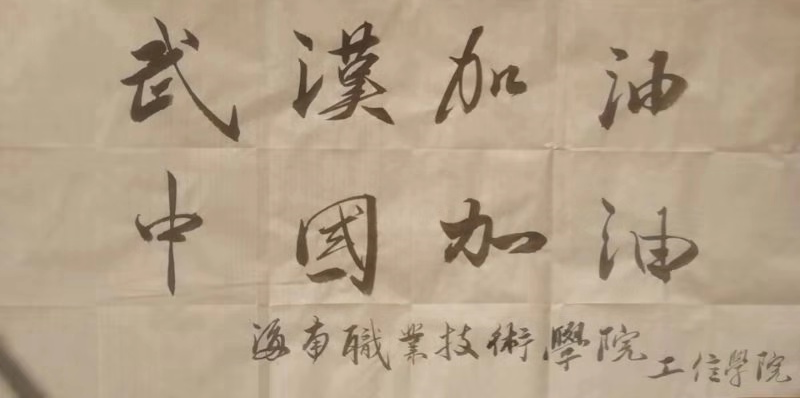 武漢加油
中國加油
海南職業技術學院
工信學院